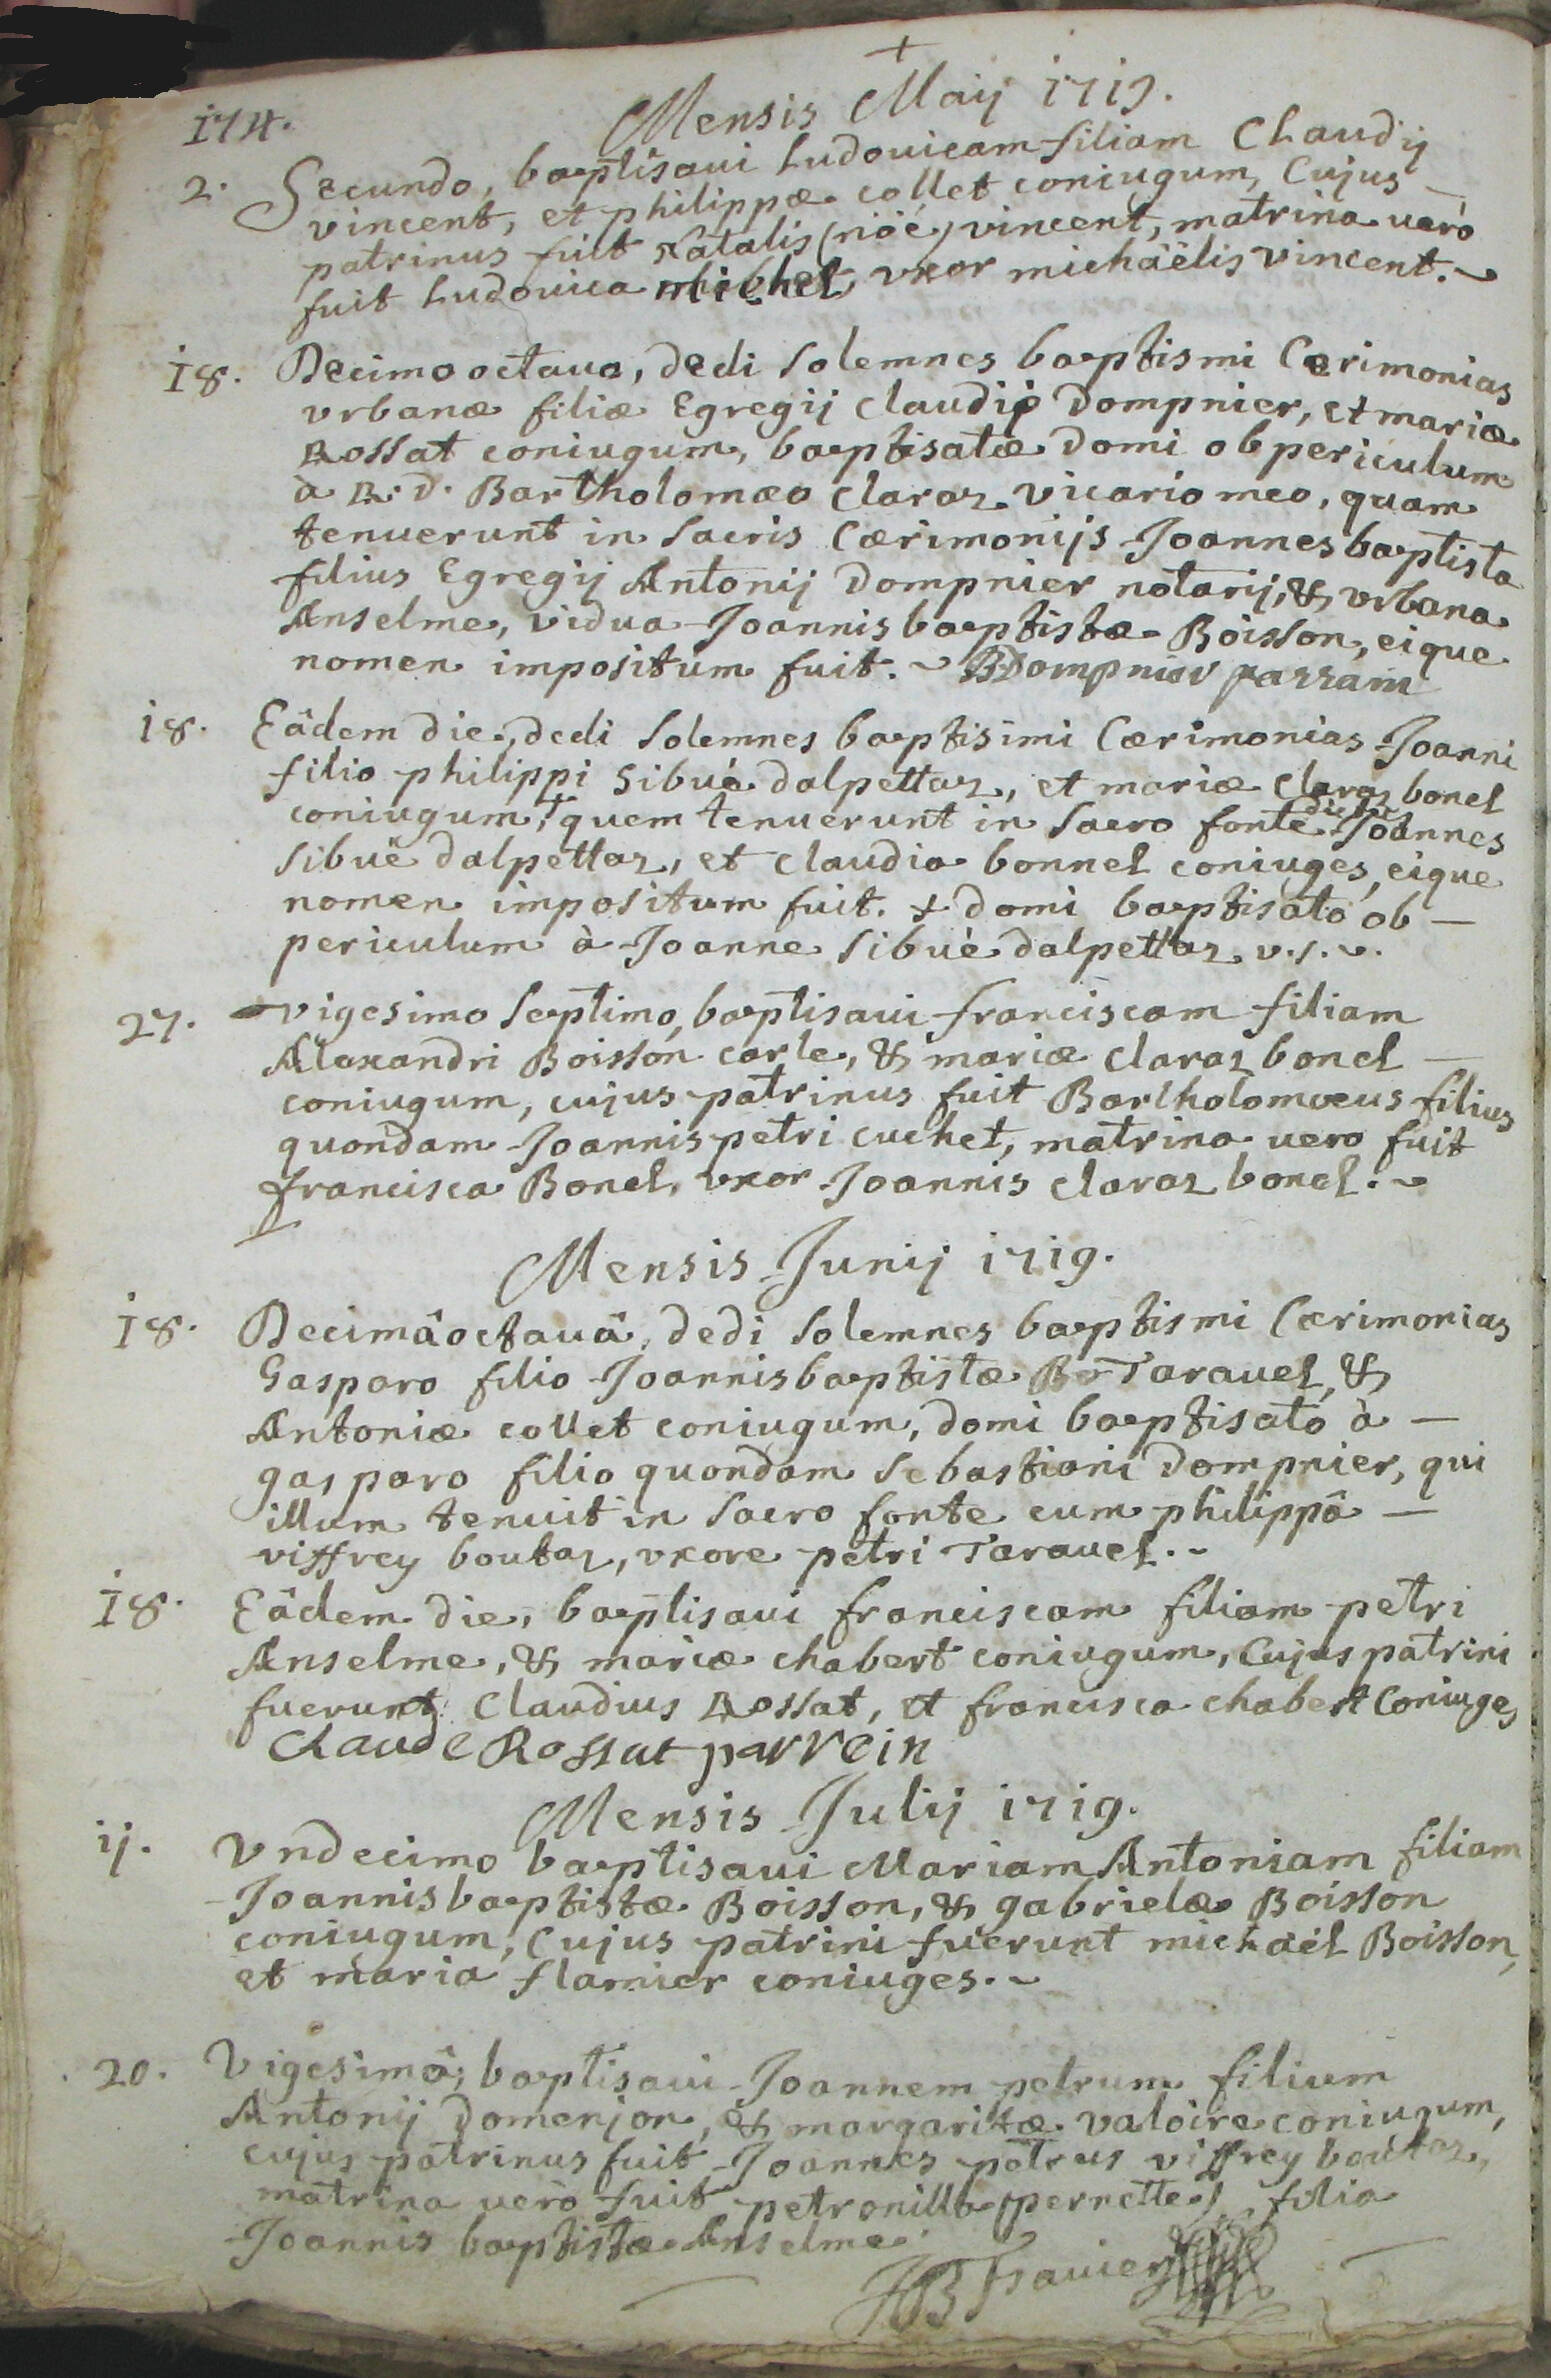 +
174.
Mensis Maij 1719.
2. Secundo, baptisaui Ludouicam filiam Claudij
vincent, et philippæ collet coniugum, Cujus —
patrinus fuit Natalis (nöé) vincent, matrina uerò
fuit Ludouica michel vxor michäëlis vincent.
18. Decimo octaua, dedi solemnes baptismi Cærimonias
vrbanæ filiæ Egregij claudij Dompnier, et mariæ
Rossat coniugum, baptisatæ domi ob periculum
à R. D. Bartholomæo claraz vicario meo, quam
tenuerunt in sacris Cærimonijs Joannesbaptista
filius Egregij Antonij Dompnier notarij, & vrbana
Anselme, vidua Joannisbaptistæ Boisson, eique
nomen impositum fuit. BDompnier parrain
18. Eâdem die, dedi solemnes baptisimi Cærimonias Joanni
filio philippi Sibué dalpettaz, et mariæ claraz bonel
coniugum, + quem tenuerunt in sacro fonte dictus Joannes
Sibuë dalpettaz, et claudia bonnel coniuges, eique
nomen impositum fuit. + domi baptisato ob —
periculum à Joanne Sibuè dalpettaz v.s.v.
27. vigesimo septimo, baptisaui franciscam filiam
Alexandri Boisson carle, & mariæ claraz bonel —
coniugum, cujus patrinus fuit Bartholomæus filius
quondam Joannispetri cuchet, matrina uero fuit
francisca Bonel, vxor Joannis claraz bonel.
Mensis Junij 1719.
18. Decimâoctauâ, dedi solemnes baptismi Cærimonias
Gasparo filio Joannisbaptistæ Taravel, &
Antoniæ collet coniugum, domi baptisato à —
gasparo filio quondam sebastiani Dompnier, qui
illum tenuit in sacro fonte cum philippâ —
viffrey boutaz, vxore petri Taravel.
18. Eâdem die, baptisaui franciscam filiam petri
Anselme, & mariæ chabert coniugum, Cujus patrini
fuerunt claudius Rossat, et francisca chabert Coniuges
Claude Rossat parrein
Mensis Julij 1719.
ij. Vndecimo baptisaui Mariam Antoniam filiam
Joannisbaptistæ Boisson, & gabrielæ Boisson
coniugum, Cujus patrini fuerunt michaël Boisson,
et maria flamier coniuges.
20. Vigesimâ, baptisaui Joannem petrum filium
Antonij Domenjon, & margaritæ valoire coniugum,
cujus patrinus fuit Joannes petrus viffrey boutaz,
matrina uerò fuit petronilla (pernette) filia
Joannis baptistæ Anselme.